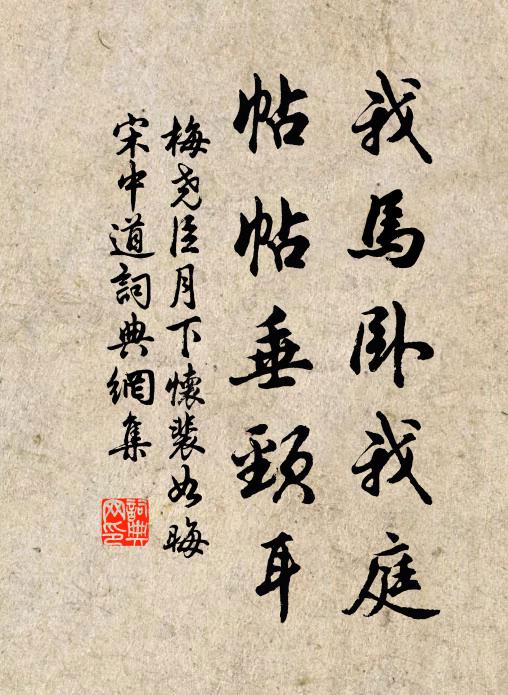 我馬卧我庭
帖帖垂頸耳
梅堯臣月下懷裴如晦
宋中道詞典網集
詞典網印